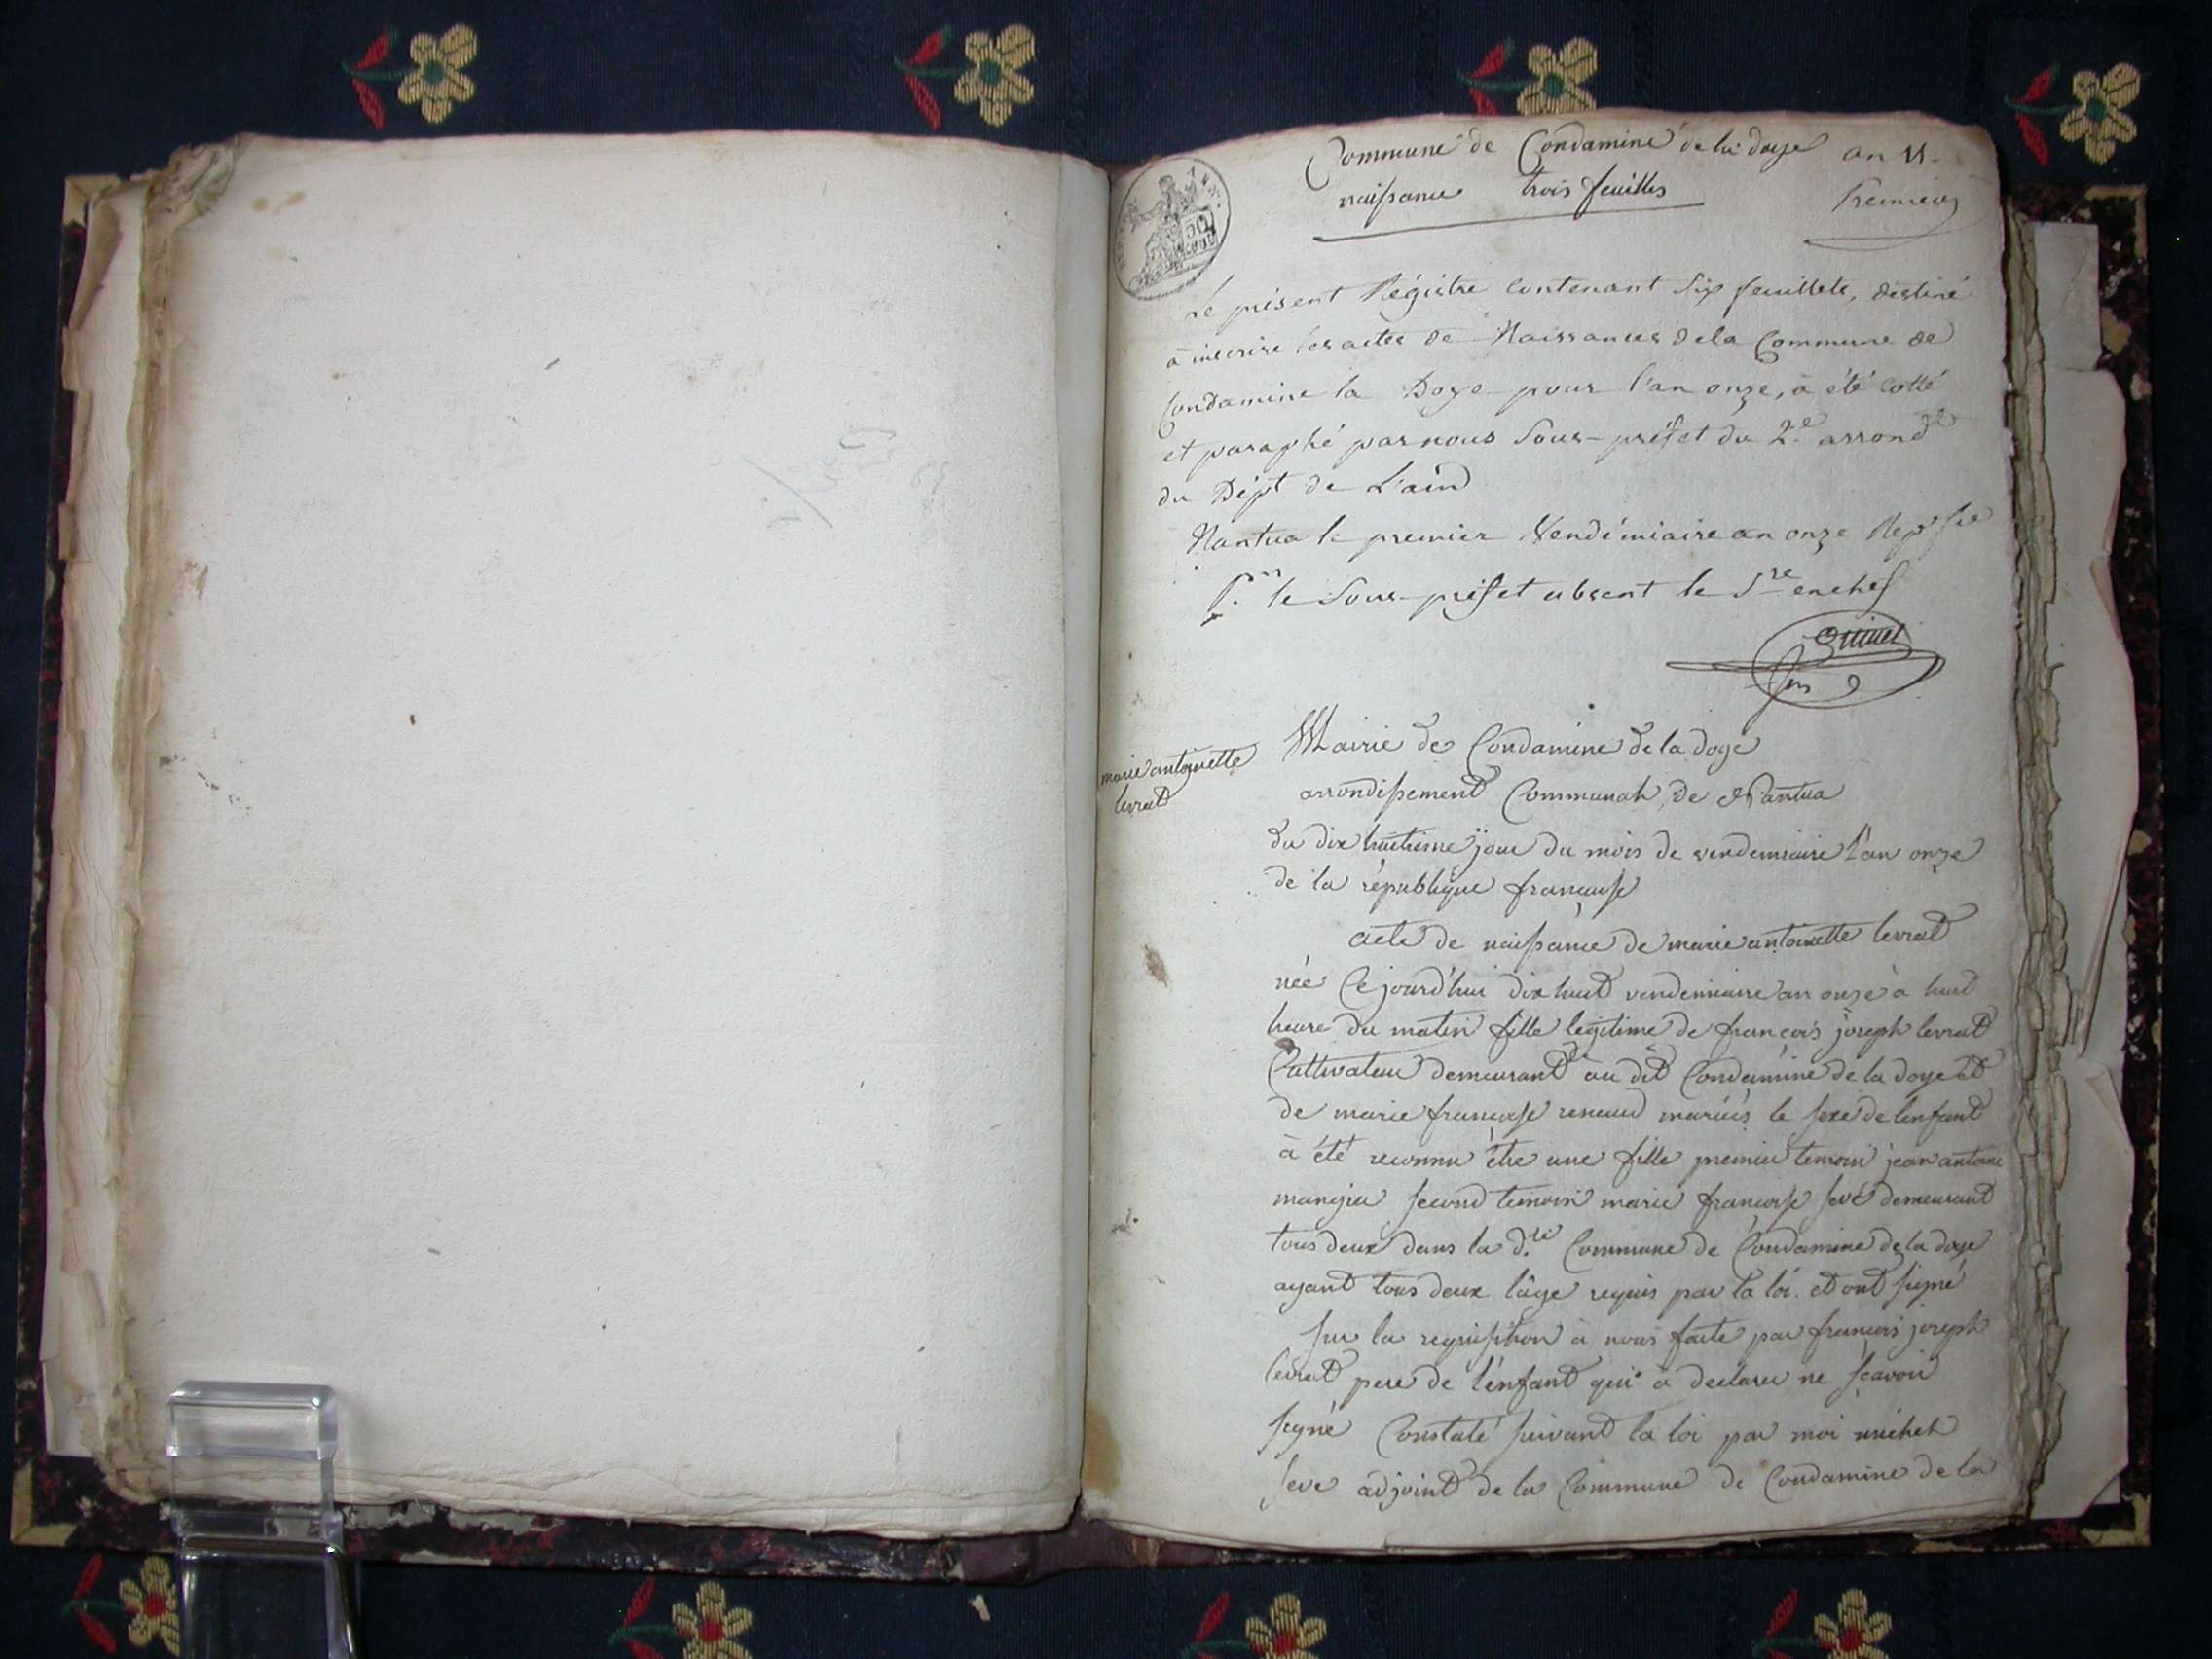 Commune de Condamine de la doye an 11.
naissance trois feuilles
Premier
Le présent Régistre contenant Six feuillets, destiné
à inscrire les actes de Naissances de la Commune de
Condamine la Doye pour l'an onze, à été cotté
et paraphé par nous Sous-préfet du 2.e arrond.t
du Dép.t de L'ain
Nantua le premier Vendémiaire an onze Rep. fse
P.r le Sous-préfet absent le S.re en chef
marie antoinette
levrat
Mairie de Condamine de la doye
arrondissement Communal de Nantua
du dix huitieme jour du mois de vendemiaire l'an onze
de la république francaise
acte de naissance de marie antoinette levrat
née Cejourd'hui dix huit vendemiaire an onze à huit
heure du matin fille legitime de françois joseph levrat
Cultivateur demeurant au dit Condamine de la doye et
de marie francoise renaud mariés le sexe de lenfant
à été reconnu être une fille premier temoin jean antoine
second temoin marie francoise seve demeurant
tous deux dans la d.te Commune de Condamine de la doye
ayant tous deux lâge requis par la loi. et ont signé
sur la requisition à nous faite par francois joseph
levrat pere de l'enfant qui à declarer ne scavoir
signé Constaté suivant la loi par moi michel
seve adjoint de la Commune de Condamine de la